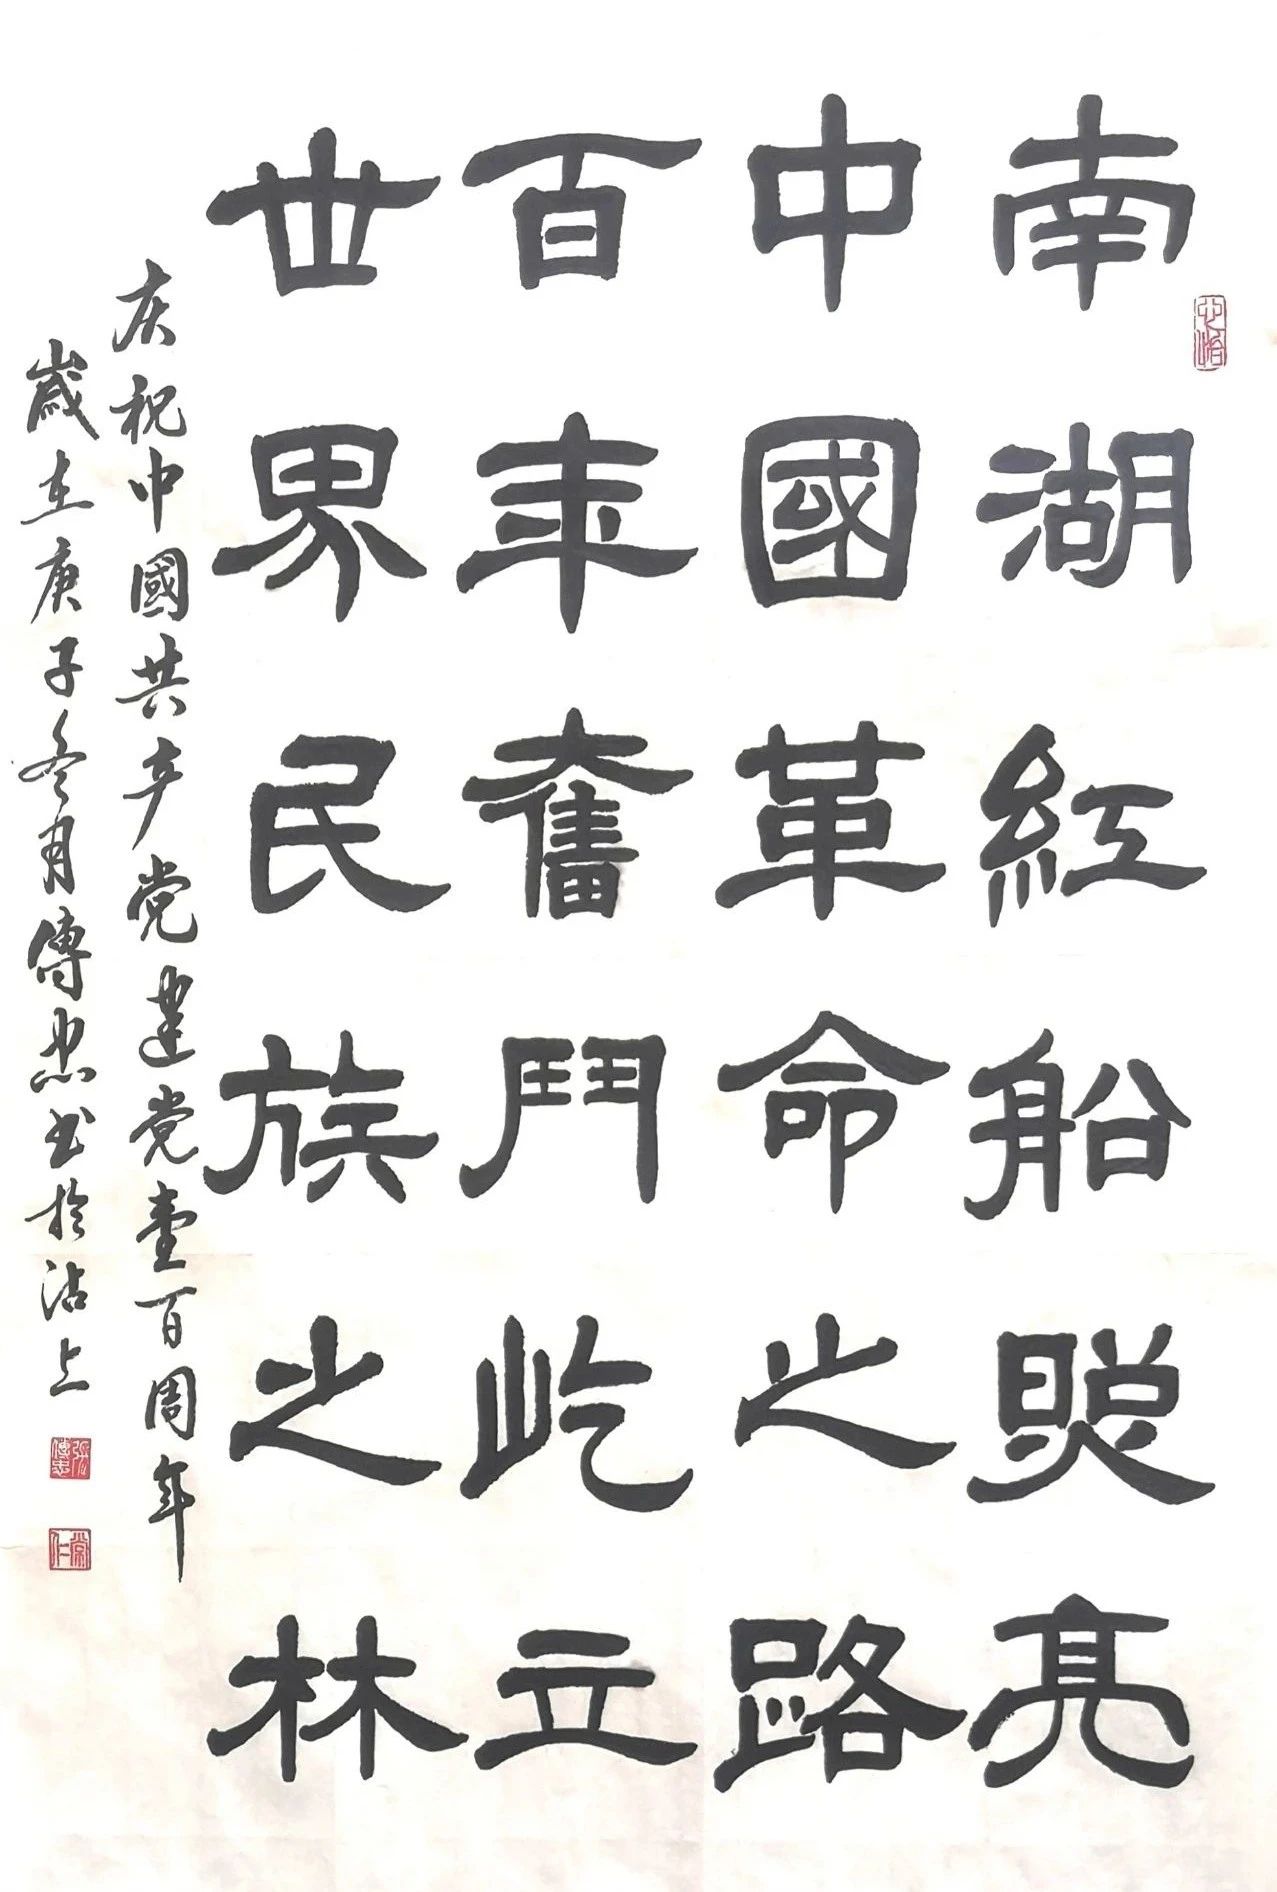 南湖紅船照亮
中國革命之路
百年奮鬥屹立
世界民族之林
庆祝中國共产党建党壹百周年
歲在庚子冬月傳忠书於沽上
張傳忠